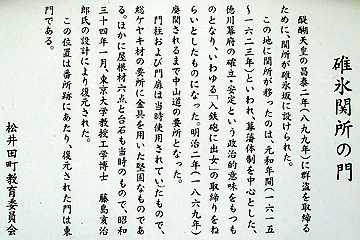 碓氷関所の門
醍醐天皇の昌泰二年(八九九年)に群盗を取締る
ために、関所が碓氷坂に設けられた。
この地に関所が移ったのは、元和年間(一六一五
~一六二三年)といわれ、幕藩体制を中心とした、
徳川幕府の確立・安定という政治的意味をもつも
のとなり、いわゆる「入鉄砲に出女」の取締りをね
らいとしたものになった。明治二年(一八六九年)
廃関されるまで中山道の要所となった。
門柱および門扉は当時使用されていたもので、
総ケヤキ材の要所に金具を用いた堅固なものであ
る。ほかに屋根材六点と台石も当時のもので、昭和
三十四年一月、東京大学教授工学博士 藤島亥治
郎氏の設計により復元された。
この位置は番所跡にあたり、復元された門は東
門である。
松井田町教育委員会